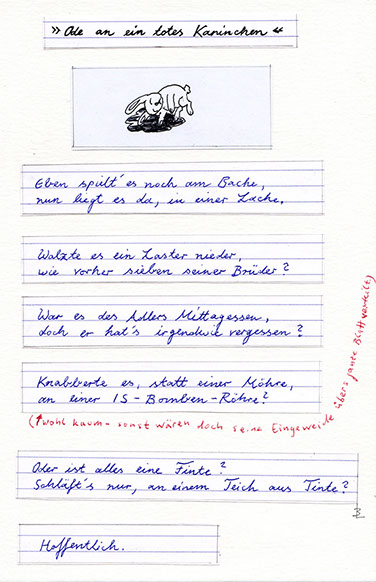 »Ode an ein totes Kaninchen«
Eben spielt's noch am Bache,
nun liegt es da, in einer Lache.
Walzte es ein Laster nieder,
wie vorher sieben seiner Brüder?
War es des Adlers Mittagessen,
doch er hat's irgendwie vergessen?
Knabberte es, statt einer Möhre,
an einer IS-Bomben-Röhre?
(↑wohl kaum - sonst wären doch seine Eingeweide übers ganze Blatt verteilt)
Oder ist alles eine Finte?
Schläft's nur, an einem Teich aus Tinte?
Hoffentlich.